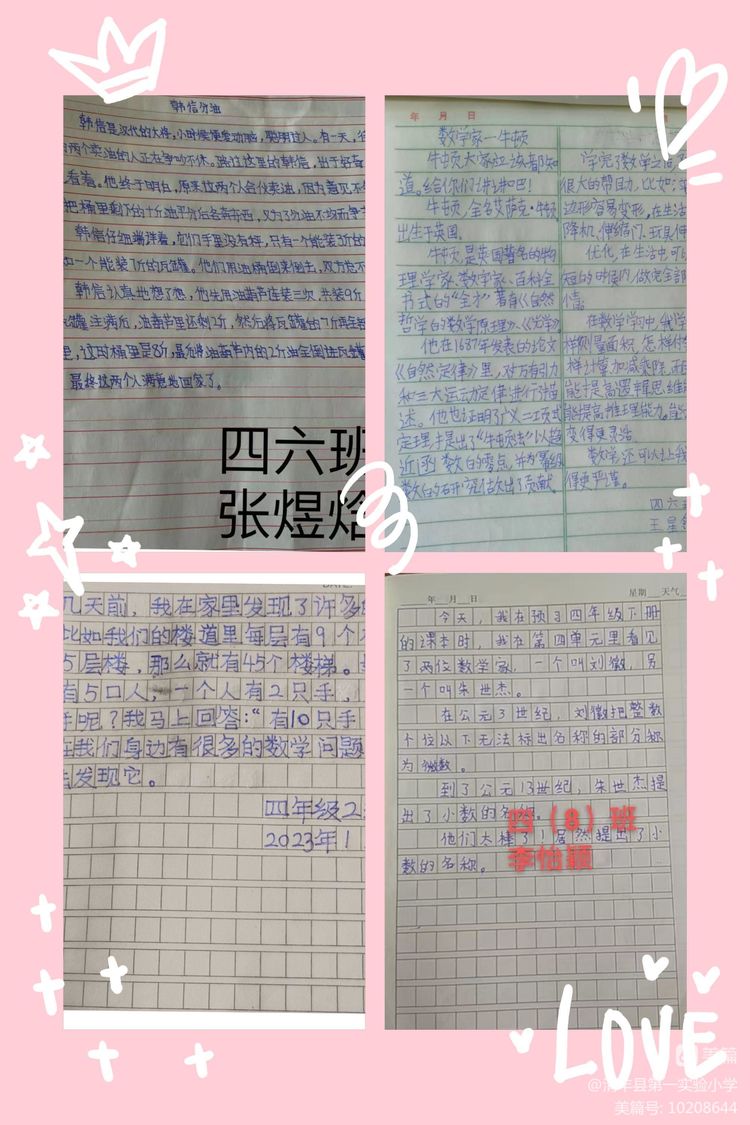 韩信分油
韩信是汉代的大将,小时候便爱动脑,聪明过人。有一天,
两个卖油的人正在争吵不休。路过这里的韩信,出于好奇
看着。他终于明白,原来这两个人合伙卖油,因为意见不
把桶里剩下的十斤油平分后各奔东西,又为了分油不均而争
韩信仔细端详着,他们手里没有秤,只有一个能装3斤的
一个能装7斤的瓦罐。他们用油桶倒来倒去,双方总不
韩信认真地想了想,他先用油葫芦连装三次,共装9斤,
罐注满后,油葫芦里还剩2斤,然后将瓦罐的7斤再全
里,这时桶里是8斤,最后将油葫芦内的2斤油全倒进瓦罐
最终这两个人满意地回家了。
四六班
张煜焓
年 月 日
数学家—牛顿
牛顿大家应该都知
道。给你们讲讲吧!
牛顿,全名艾萨克·牛顿
出生于英国。
牛顿是英国著名的物
理学家、数学家、百科全
书式的“全才”著有《自然
哲学的数学原理》、《光学》
他在1687年发表的论文
《自然定律》里,对万有引力
和三大运动定律进行了描
述。他也证明了广义二项式
定理,并提出了“牛顿法”以趋
近函数的零点,并为幂级
数的研究作出了贡献。
学完了数学之后
很大的帮助,比如:
边形容易变形,在生活
降机、伸缩门、玩具伸
优化,在生活中可
短的时候内,做完全部
在数学学习中,我学
样测量面积,怎样
样计算加减乘除,
能提高逻辑思维
能提高推理能力。
变得更灵活。
数学还可以让我
得更严谨。
四六班
王星
几天前,我在家里发现了许多
比如我们的楼道里每层有9个
5层楼,那么就有45个楼梯。
有5口人,一个人有2只手,
手呢?我马上回答:“有10只手
在我们身边有很多的数学问题
去发现它。
四年级2
2023年1
年 月 日 星期 天气
今天,我在预习四年级下册
的课本时,我在第四单元里看见
了两位数学家,一个叫刘徽,另
一个叫朱世杰。
在公元3世纪,刘徽把整数
个位以下无法标出名称的部分称
为微数。
到了公元13世纪,朱世杰提
出了小数的名称。
他们太棒了!居然提出了小
数的名称。
四(8)班
李怡颖
LOVE
美篇
@清丰县第一实验小学
美篇号: 10208644